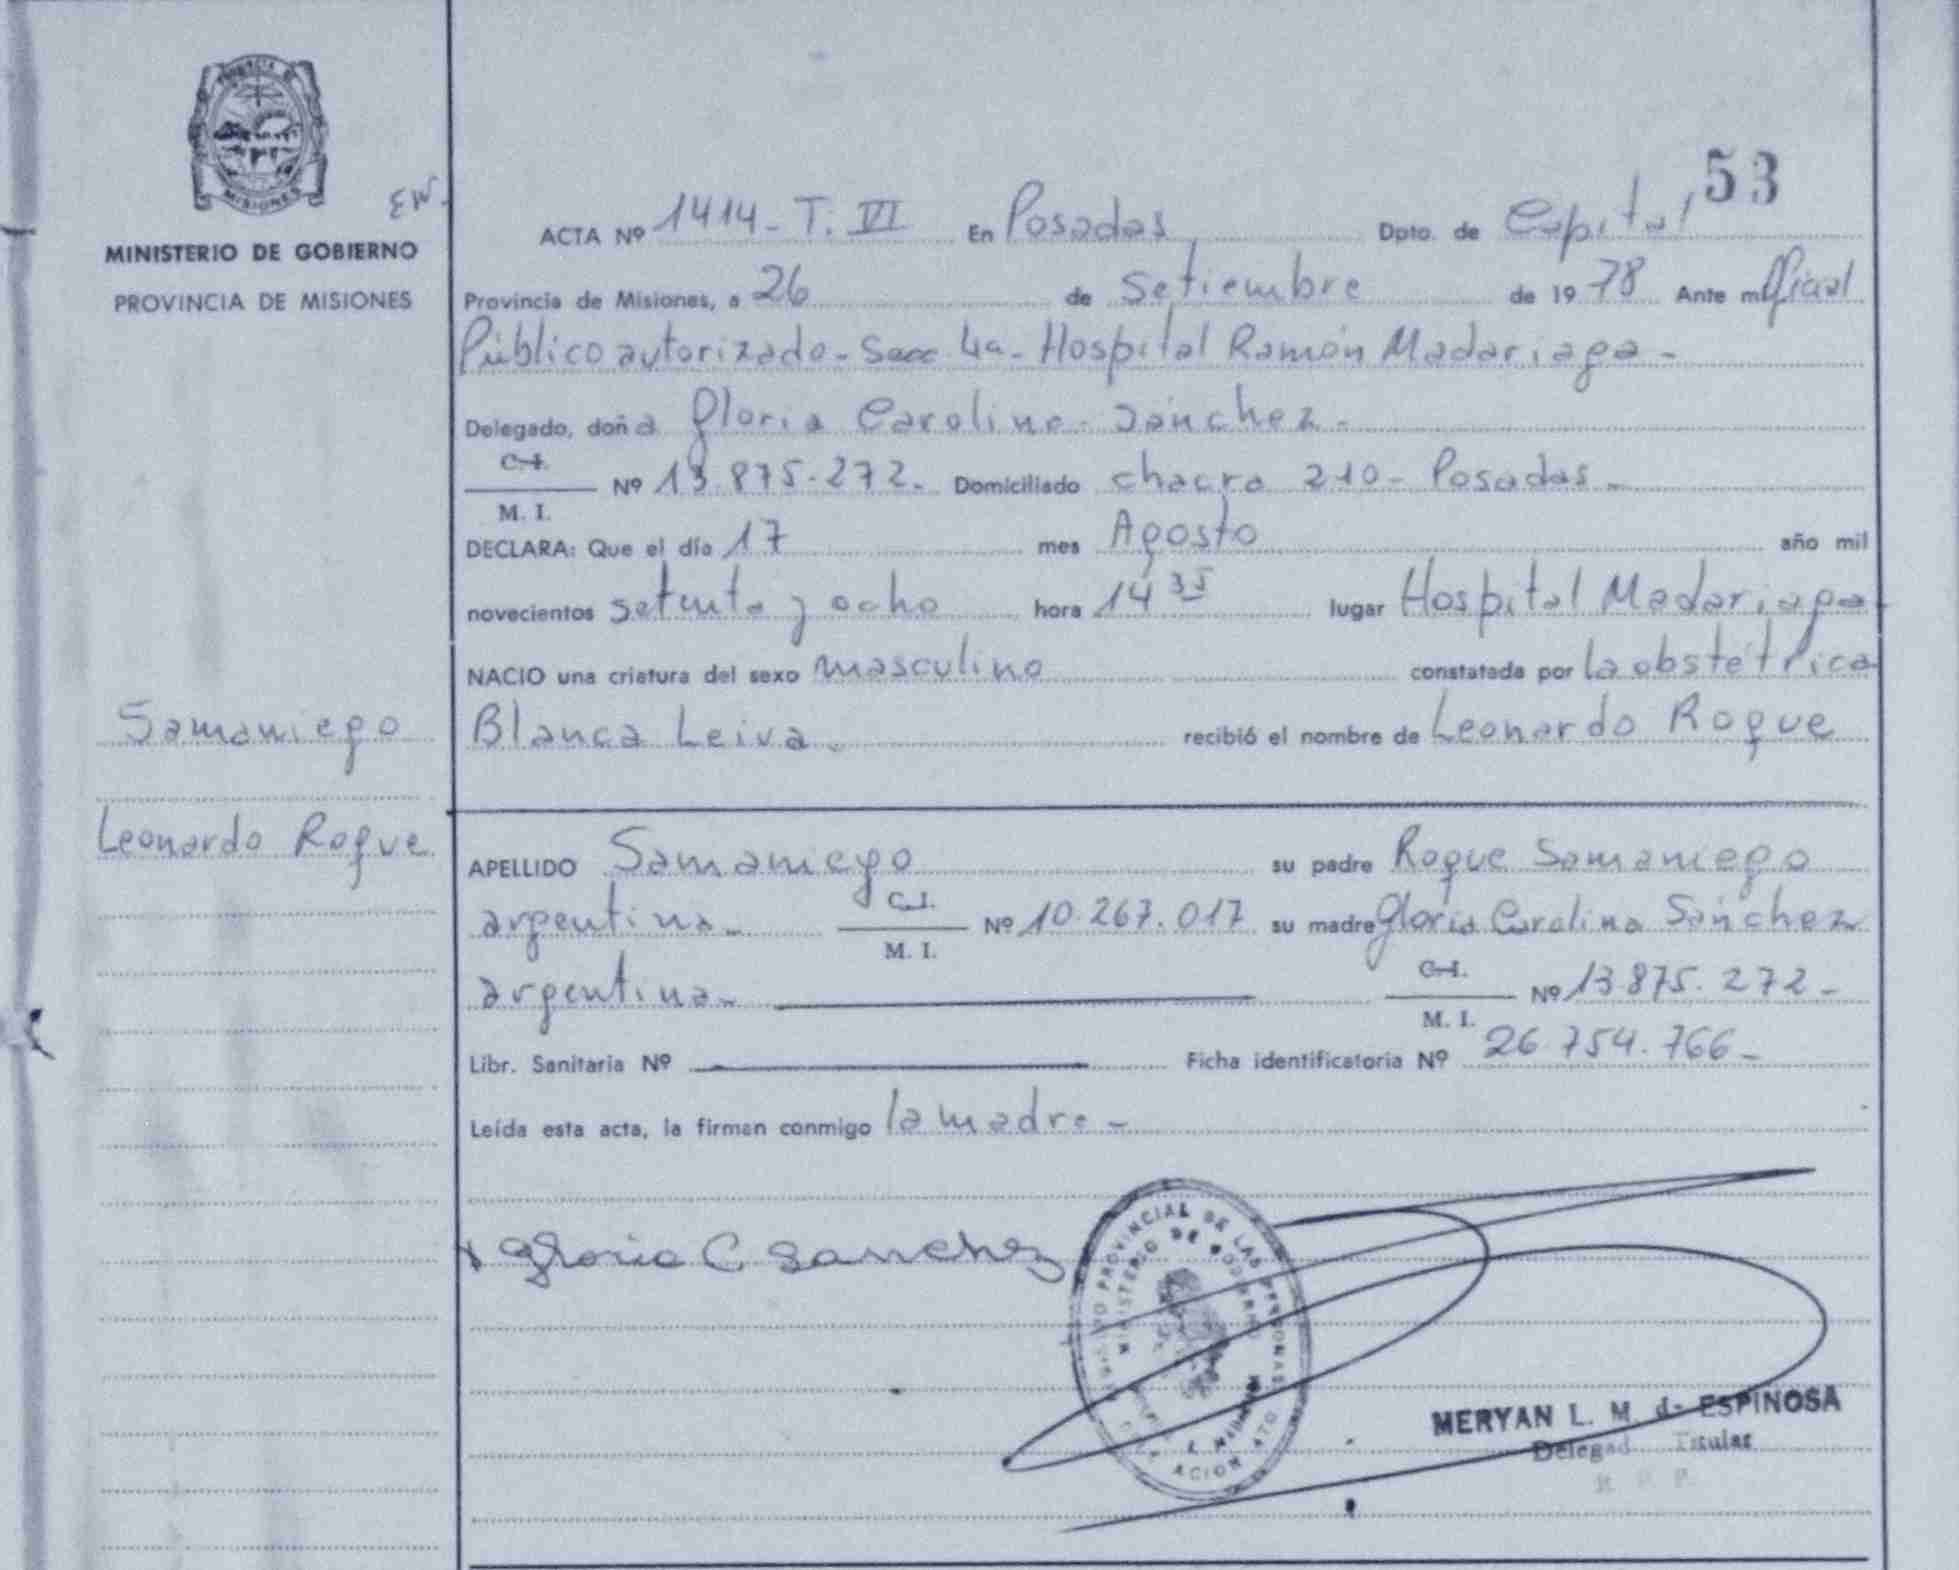 PROVINCIA DE
MISIONES
MINISTERIO DE GOBIERNO
PROVINCIA DE MISIONES
EW-
53
ACTA Nº 1414- T. VI En Posadas, Dpto. de Capital
Provincia de Misiones, a 26 de Setiembre de 19 78 Ante mi Oficial
Público autorizado- Secc 4a- Hospital Ramón Madariaga-
Delegado, doña Gloria Carolina Sánchez-
C.I.
Nº 13.875.272- Domiciliado chacra 210- Posadas-
M. I.
DECLARA: Que el día 17 mes Agosto año mil
novecientos setenta y ocho hora 14 35 lugar Hospital Madariaga
NACIO una criatura del sexo masculino constatada por la obstétrica
Blanca Leiva- recibió el nombre de Leonardo Roque
Samaniego
Leonardo Roque
APELLIDO Samaniego su padre Roque Samaniego
argentina- C.I. Nº 10.267.017 su madre Gloria Carolina Sánchez
M. I.
argentina- C.I. Nº 13.875.272-
M. I.
Libr. Sanitaria Nº Ficha identificatoria Nº 26.754.766-
Leída esta acta, la firman conmigo la madre-
Gloria C Sanchez
PROVINCIAL DE LAS PERSONAS
MINISTERIO DE GOBIERNO
MERYAN L. M. de ESPINOSA
Delegad Titular